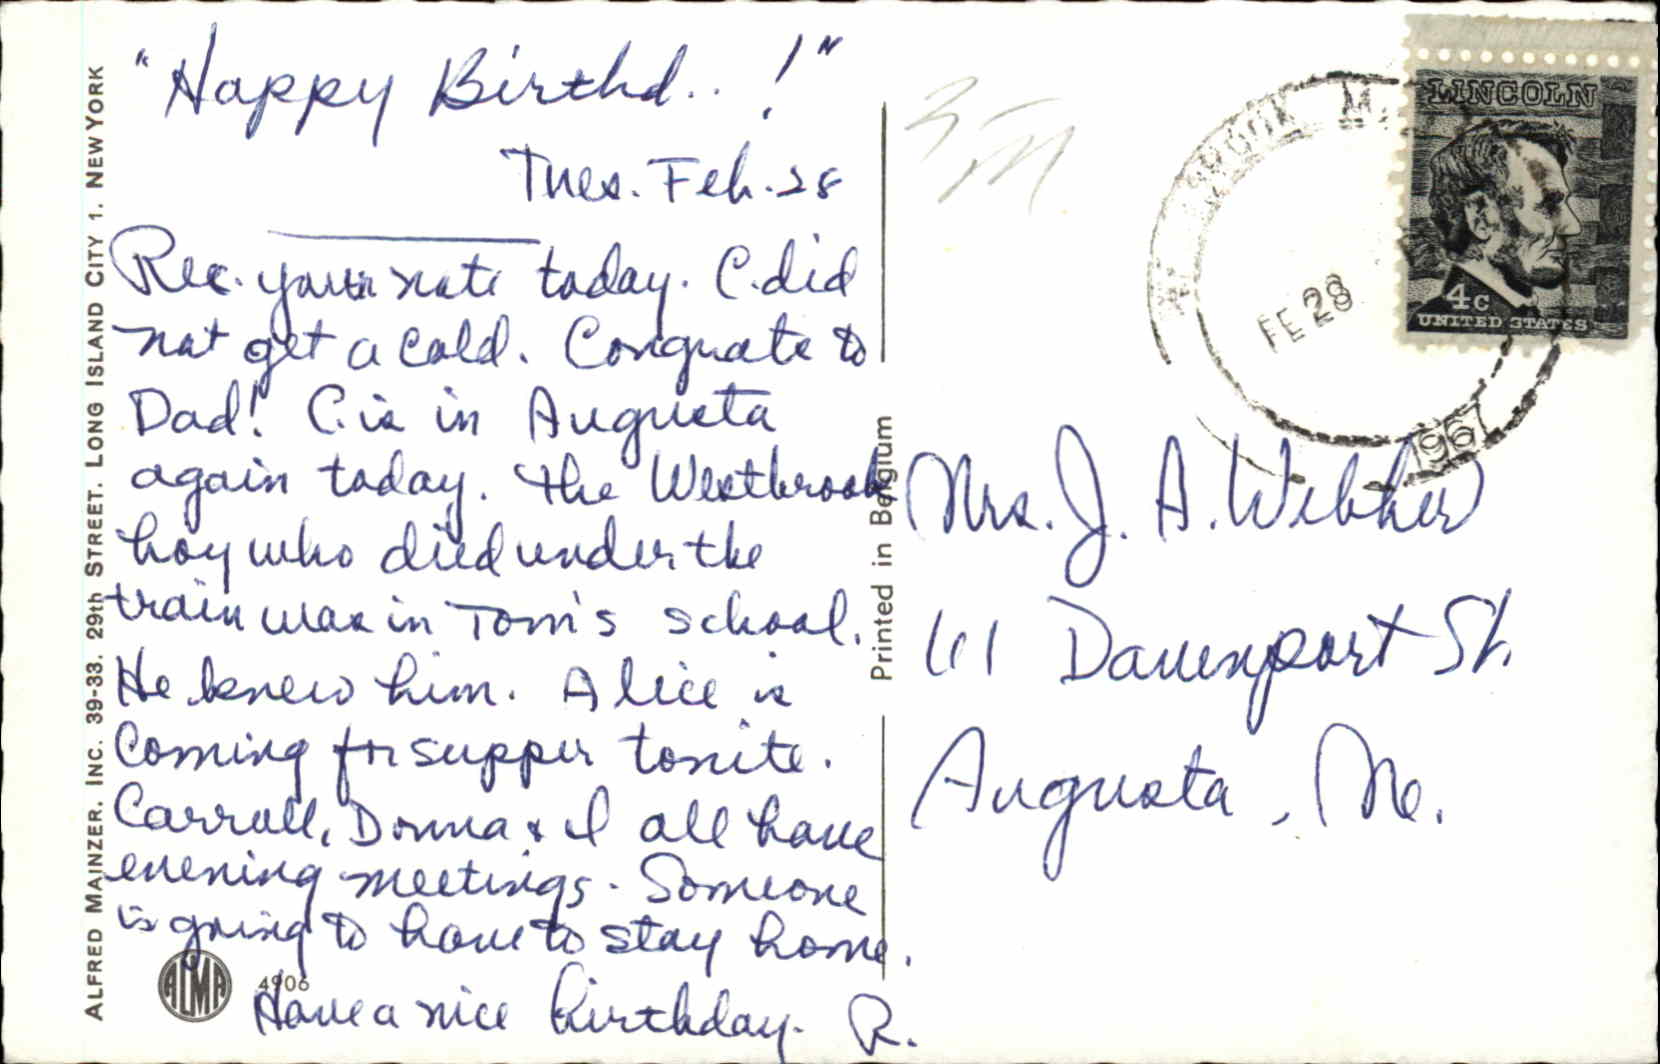 "Happy Birthd..!"
Tues. Feb. 28
Rec. your note today. C. did
not get a cold. Congrats to
Dad! C. is in Augusta
again today. The Westbrook
boy who died under the
train was in Tom's school.
He knew him. Alice is
coming for supper tonite.
Carroll, Donna & I all have
evening meetings. Someone
is going to have to stay home.
Have a nice birthday. R.
ALFRED MAINZER, INC. 39-33. 29th STREET. LONG ISLAND CITY 1. NEW YORK
ALMA
4906
Printed in Belgium
FE 28
1967
LINCOLN
4c
UNITED STATES
Mrs. J. A. Webber
61 Davenport St.
Augusta, Me.